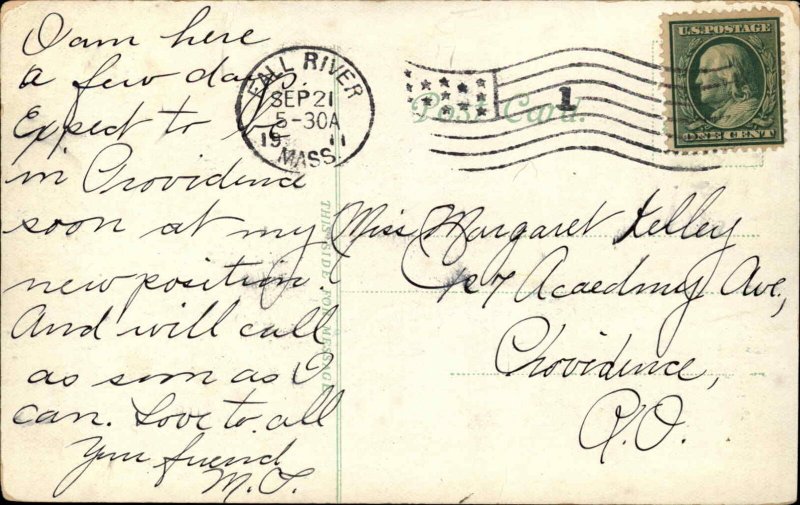 I am here
a few days.
Expect to be
in Providence
soon at my
new position.
And will call
as soon as I
can. Love to all
Your friend
M.
FALL RIVER
SEP 21
5-30A
19 11
MASS.
Post Card.
1
U.S. POSTAGE
ONE CENT
THIS SIDE FOR MESSAGE
Miss Margaret Kelley
127 Acaedmy Ave,
Providence,
R.I.